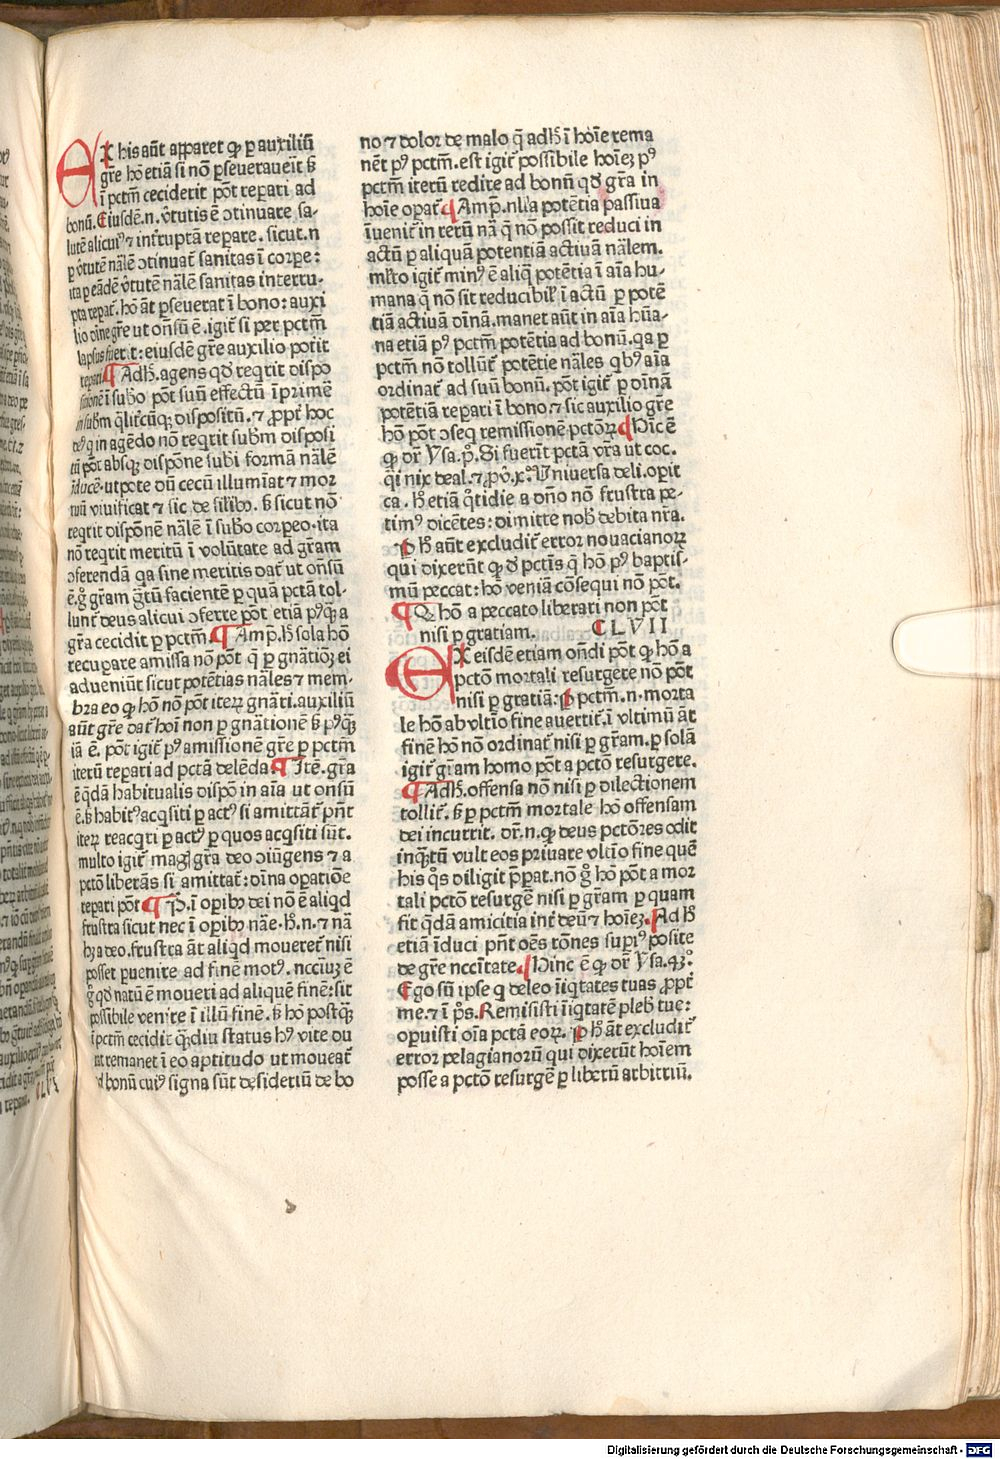 Ex his aūt apparet ꝙ ꝑ auxiliū
gr̄e hō etiā si nō ꝑseueraueīt ſꝫ
ī pctm̄ ceciderit pōt repari ad
bonū. Eiusdē.n. v̄tutis ē ↄtinuare sa-
lutē alicui⁹ ⁊ int̄ruptā repare. sicut.n
ꝑ v̄tutē nālē ↄtinuat̄ sanitas ī corpe:
ita ꝑ eādē v̄tutē nālē sanitas interru-
pta repat̄. hō āt ꝑseuerat ī bono: auxi
lio diīe gr̄e ut oñsū ē. igit̄ si per pctm̄
lapsus fuerit: eiusdē gr̄e auxilio potit
repari. ¶ Adhꝫ. agens qd̄ reqrit dispo
sitionē ī subo pōt suū effectū īprimē
in subm̄ qlit̄cūqꝫ dispositū. ⁊ ꝓpt̄ hoc
de⁹ q in agēdo nō reqrit subm̄ disposi
tū pōt absqꝫ dispōne subi formā nālē
īducē. utpote dū cecū illumīat ⁊ mor
tuū viuificat ⁊ sic de silibꝫ. ſꝫ sicut nō
reqrit dispōnē nālē ī subo corpeo. ita
nō reqrit meritū ī volūtate ad gr̄am
ↄferendā qa sine meritis dat̄ ut oñsū
ē. gͦ gr̄am gr̄tū facientē ꝑ quā pctā tol-
lunt̄ deus alicui ↄferre pōt etiā p⁹qꝫ a
gr̄a cecidit ꝑ pctm̄. ¶ Amp̄. hꝫ sola hō
recuꝑare amissa nō pōt q ꝑ gn̄atiōꝫ ei
adueniūt sicut potētias nāles ⁊ mem-
bra eo ꝙ hō nō pōt iteꝝ gn̄ari. auxiliū
aūt gr̄e dat̄ hoī non ꝑ gn̄ationē ſꝫ p⁹qꝫ
iā ē. pōt igit̄ p⁹ amissionē gr̄e ꝑ pctm̄
iterū repari ad pctā delēda. ¶ Itē. gr̄a
ē qdā habitualis dispō in aīa ut oñsū
ē. ſꝫ habit⁹ acqsiti ꝑ act⁹ si amittāt̄ pn̄t
iteꝝ reacqri ꝑ act⁹ ꝑ quos acqsiti sūt.
multo igit̄ mag̃ gr̄a deo ↄiūgens ⁊ a
pctō liberās si amittat̄: diīna oꝑatiōe
repari pōt ¶ P̄. ī oꝑibꝫ dei nō ē aliqd
frustra sicut nec ī oꝑibꝫ nāe. hꝫ.n. ⁊ nā
hꝫ a deo. frustra āt aliqd moueret̄ nisi
posset puenire ad finē mot⁹. nccīuꝫ ē
gͦ qd natū ē moueri ad aliquē finē: sit
possibile venire ī illū finē. ſꝫ hō postqꝫ
ī pctm̄ cecidit qdiu status h⁹ vite du
rat remanet ī eo aptitudo ut moueat̄
ad bonū cui⁹ signa sūt desideriū de bo
no ⁊ dolor de malo q̄ adhꝫ ī hoīe rema
nēt p⁹ pctm̄. est igit̄ possibile hoīeꝫ p⁹
pctm̄ iterū redire ad bonū qd̄ gr̄a in
hoīe oꝑat̄ ¶ Amp̄. nlla potētia passiua
īuenit̄ in rerū nā q̄ nō possit reduci in
actū ꝑ aliquā potentiā actiuā nālem.
ml̄to igit̄ min⁹ ē aliq̄ potētia ī aīa hu-
mana q̄ nō sit reducibil̄ ī actū ꝑ potē
tiā actiuā diīnā. manet aūt in aīa hūa-
na etiā p⁹ pctm̄ potētia ad bonū. qa ꝑ
pctm̄ nō tollūt̄ potētie nāles qbꝫ aīa
ordinat̄ ad suū bonū. pōt igit̄ ꝑ diīnā
potētiā repari ī bono. ⁊ sic auxilio gr̄e
hō pōt ↄseq remissionē pctōꝝ ¶ Hīc ē
ꝙ dr̄ Ysa.pͦ. Si fuerīt pctā vr̄a ut coc.
q̄i nix deal. ⁊ ꝓv̄.xͦ. Vniuersa deli. oꝑit
ca. hꝫ etiā qͦtidie a dño nō frustra pe-
tim⁹ dicētes: dimitte nobꝫ debita nr̄a.
¶ ꝑ hꝫ aūt excludit̄ error nouacianoꝝ
qui dixerūt ꝙ d̄ pctīs q̄ hō p⁹ baptis-
mū peccat: hō veniā cōsequi nō pōt.
¶ Q hō a peccato liberari non pōt
nisi ꝑ gratiam. CLVII
Ex eisdē etiam oñdi pōt ꝙ hō a
pctō mortali resurgere nō pōt
nisi ꝑ gratiā: ꝑ pctm̄.n. morta
le hō ab vltīo fine auertit̄. ī vltimū āt
finē hō nō ordinat̄ nisi ꝑ gr̄am. ꝑ solā
igit̄ gr̄am homo pōt a pctō resurgere.
¶ Adhꝫ. offensa nō nisi ꝑ dilectionem
tollit̄. ſꝫ ꝑ pctm̄ mortale hō offensam
dei incurrit. dr̄.n. ꝙ deus pctōres odit
inqꝫtū vult eos priuare vltīo fine quē
his qͦs diligit p̄ꝑat. nō gͦ hō pōt a mor
tali pctō resurgē nisi ꝑ gr̄am ꝑ quam
fit qdā amicitia int̄ deū ⁊ hoīeꝫ. Ad hꝫ
etiā īduci pn̄t oēs rōnes supi⁹ posite
de gr̄e nccīitate. ¶ Hinc ē ꝙ dr̄ Ysa.43ͦ.
Ego sū ipse q deleo īiqtates tuas ꝓpt̄
me. ⁊ ī pͦs. Remisisti īiqtatē plebꝫ tue:
oꝑuisti oīa pctā eoꝝ. ꝑ hꝫ āt excludit̄
error pelagianorū qui dixerūt hoīem
posse a pctō resurgē ꝑ liberū arbitriū.
Digitalisierung gefördert durch die Deutsche Forschungsgemeinschaft - DFG